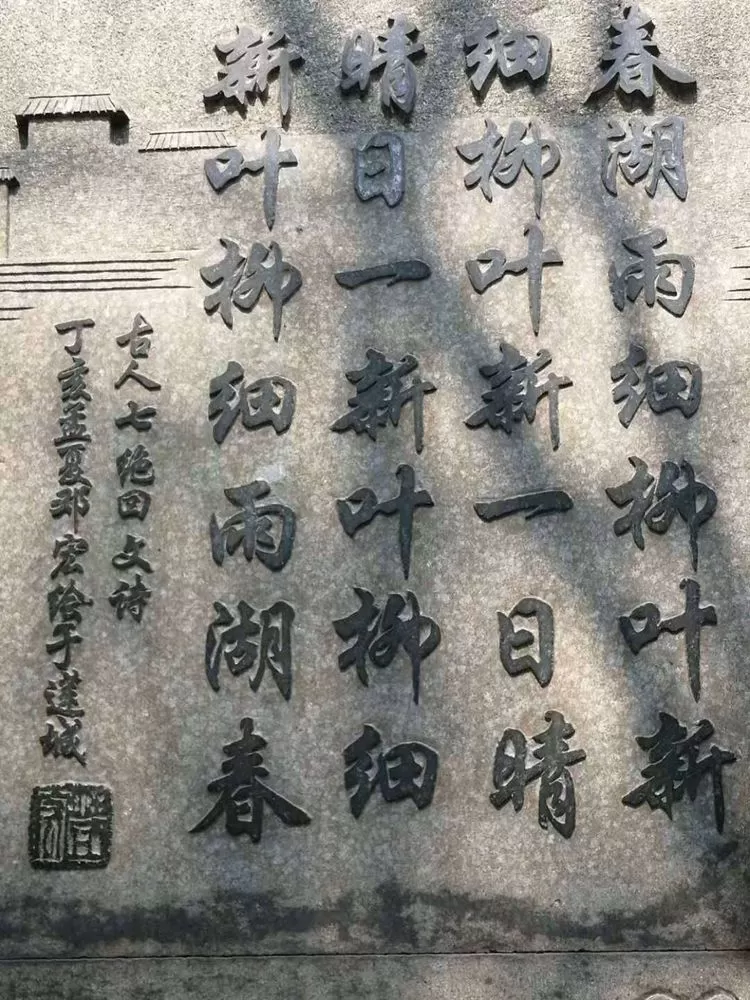 春湖雨细柳叶新
细柳叶新一日晴
晴日一新叶柳细
新叶柳细雨湖春
古人七绝回文诗
丁亥孟夏邓宏绘于莲城